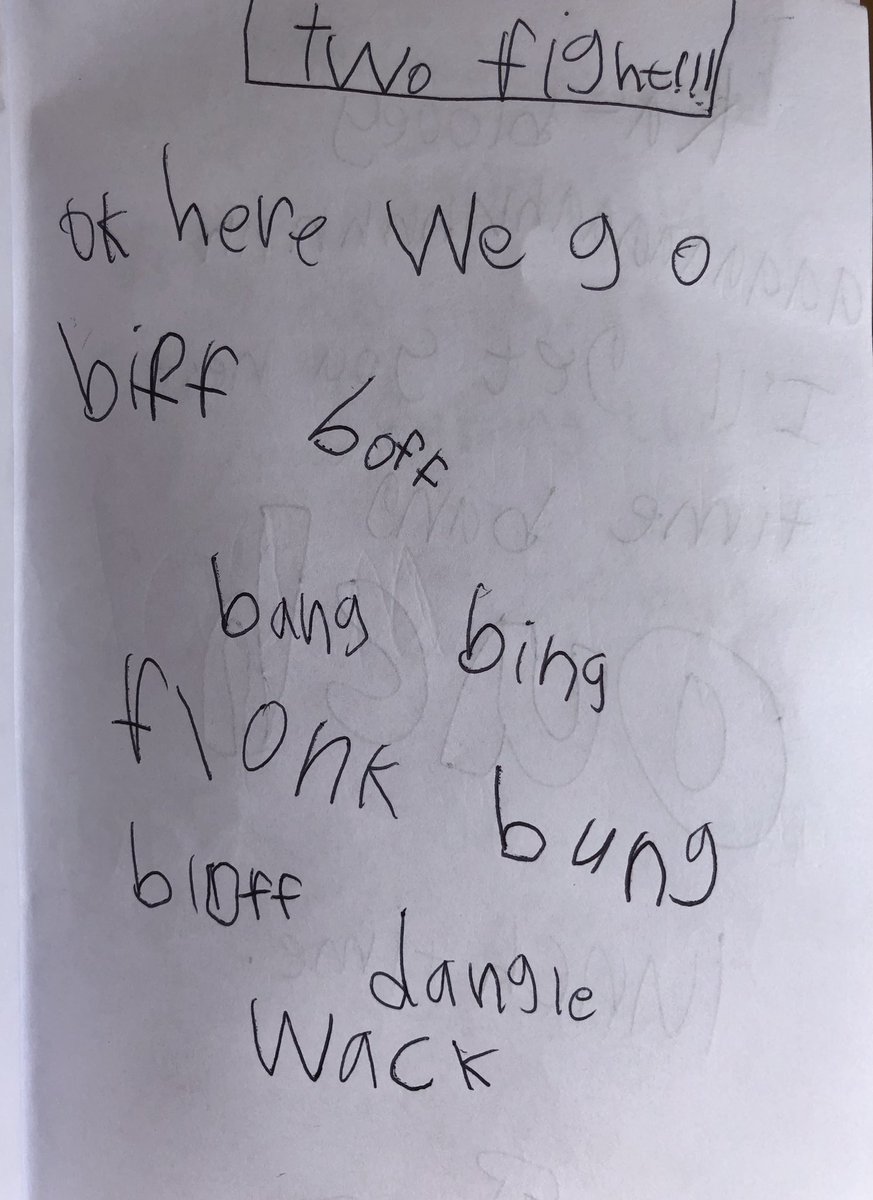 two fight!!!
ok here we go
biff
boff
bang bing
flonk
bung
bloff
dangle
wack